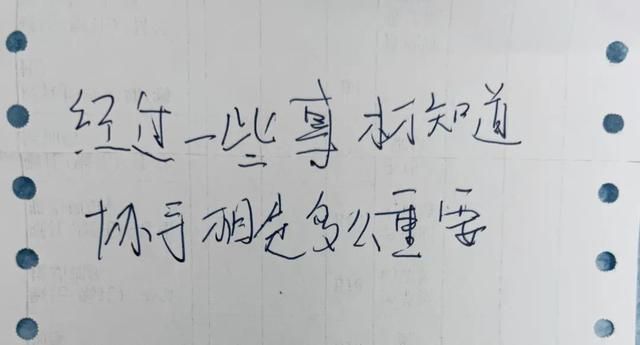 经过一些事知道
手相是多么重要